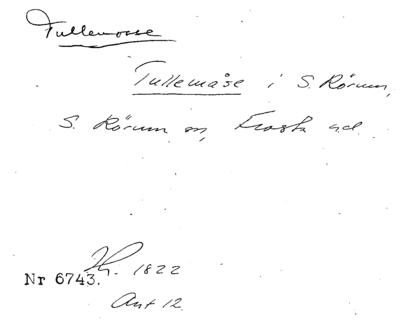 Tullemosse
Tullemåse i S. Rörum,
S. Rörum sn, Frosta hd.
Nr 6743. Jh. 1822
Ant 12.